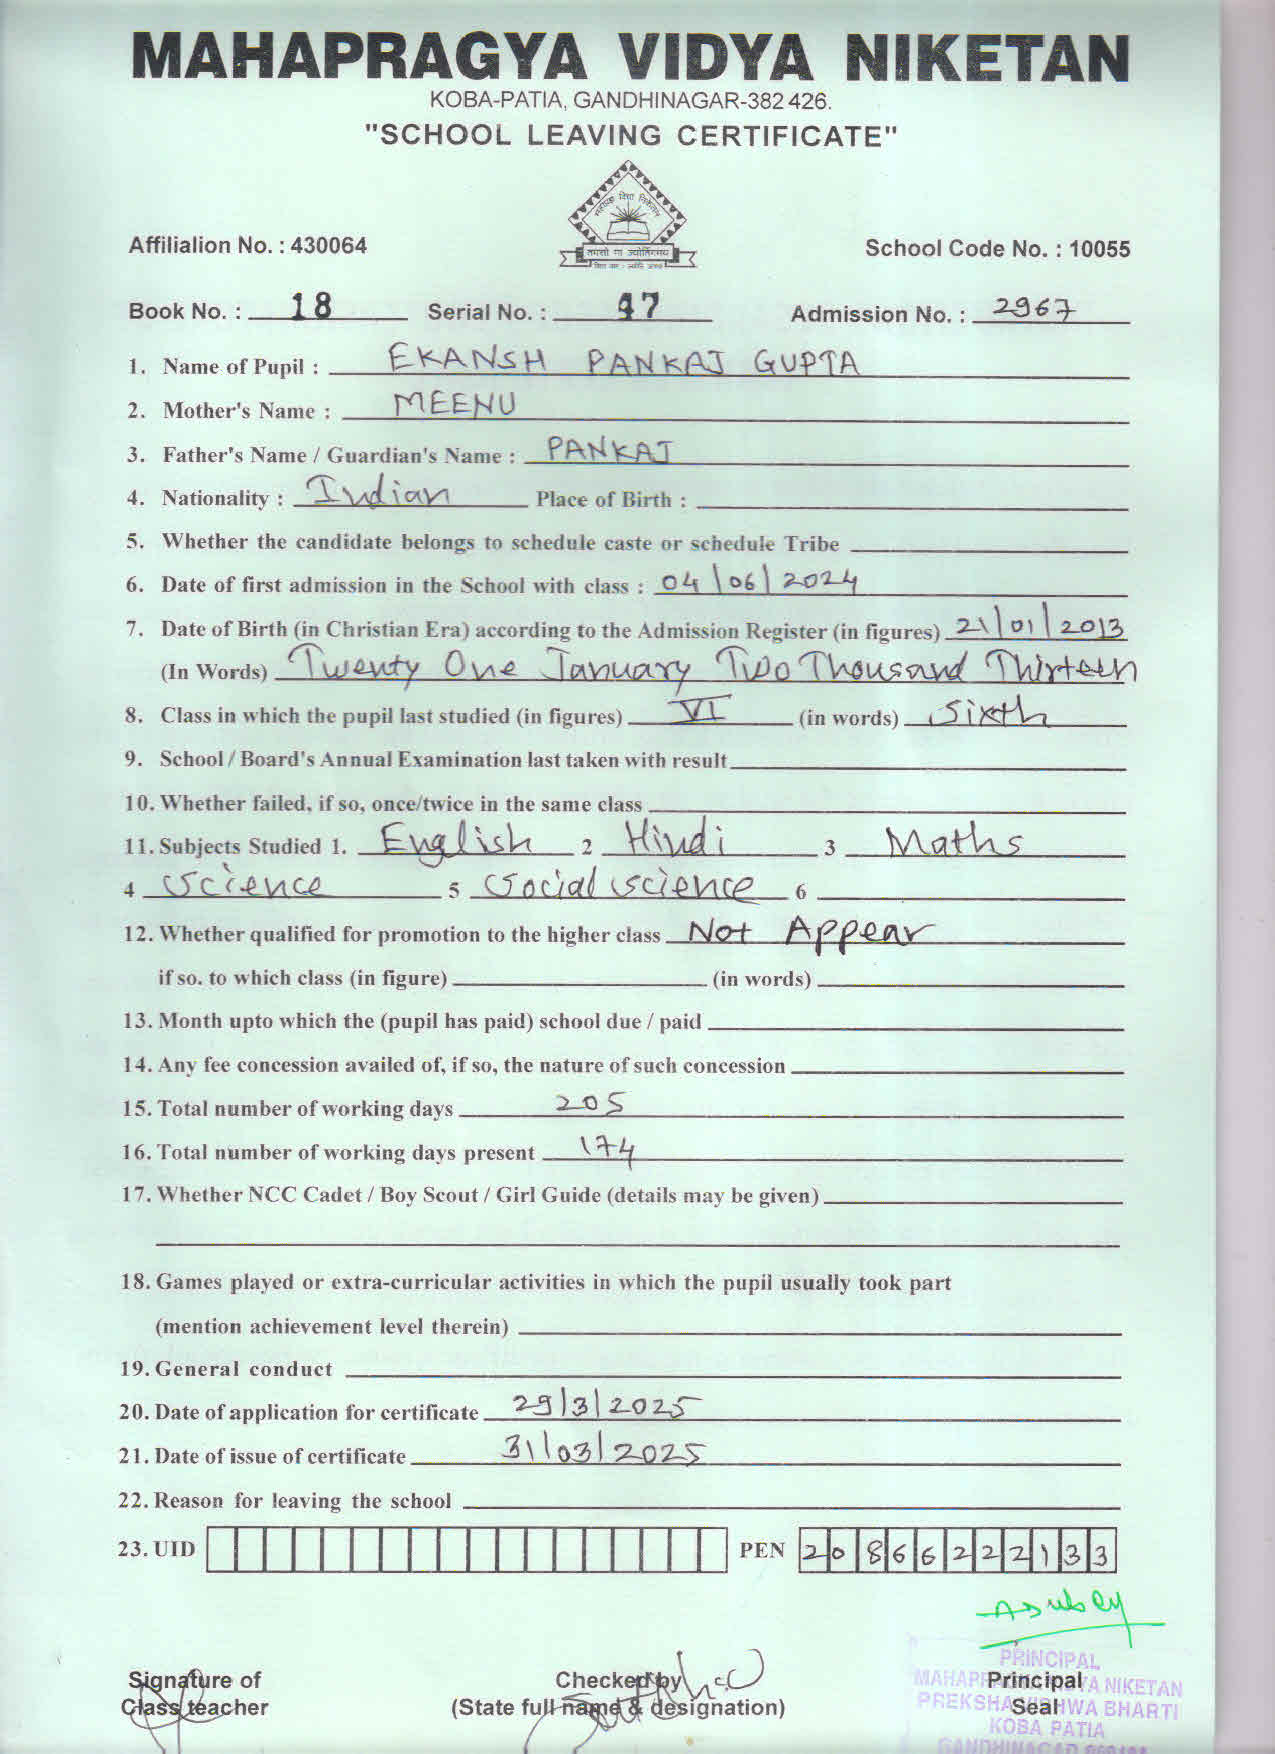 MAHAPRAGYA VIDYA NIKETAN
KOBA-PATIA, GANDHINAGAR-382 426.
"SCHOOL LEAVING CERTIFICATE"
महाप्रज्ञ विद्या निकेतन
तमसो मा ज्योतिर्गमय
Affilialion No. : 430064 School Code No. : 10055
Book No. : 18 Serial No. : 47 Admission No. : 2967
1. Name of Pupil : EKANSH PANKAJ GUPTA
2. Mother's Name : MEENU
3. Father's Name / Guardian's Name : PANKAJ
4. Nationality : Indian Place of Birth :
5. Whether the candidate belongs to schedule caste or schedule Tribe
6. Date of first admission in the School with class : 04/06/2024
7. Date of Birth (in Christian Era) according to the Admission Register (in figures) 21/01/2013
(In Words) Twenty One January Two Thousand Thirteen
8. Class in which the pupil last studied (in figures) VI (in words) Sixth
9. School / Board's Annual Examination last taken with result
10. Whether failed, if so, once/twice in the same class
11. Subjects Studied 1. English 2 Hindi 3 Maths
4 Science 5 Social Science 6
12. Whether qualified for promotion to the higher class Not Appear
if so. to which class (in figure) (in words)
13. Month upto which the (pupil has paid) school due / paid
14. Any fee concession availed of, if so, the nature of such concession
15. Total number of working days 205
16. Total number of working days present 174
17. Whether NCC Cadet / Boy Scout / Girl Guide (details may be given)
18. Games played or extra-curricular activities in which the pupil usually took part
(mention achievement level therein)
19. General conduct
20. Date of application for certificate 29/3/2025
21. Date of issue of certificate 31/03/2025
22. Reason for leaving the school
23. UID PEN 20866222133
ADubey
PRINCIPAL
MAHAPRAGYA VIDYA NIKETAN
PREKSHA VISHWA BHARTI
KOBA PATIA
Signature of Checked by Principal
Class teacher (State full name & designation) Seal